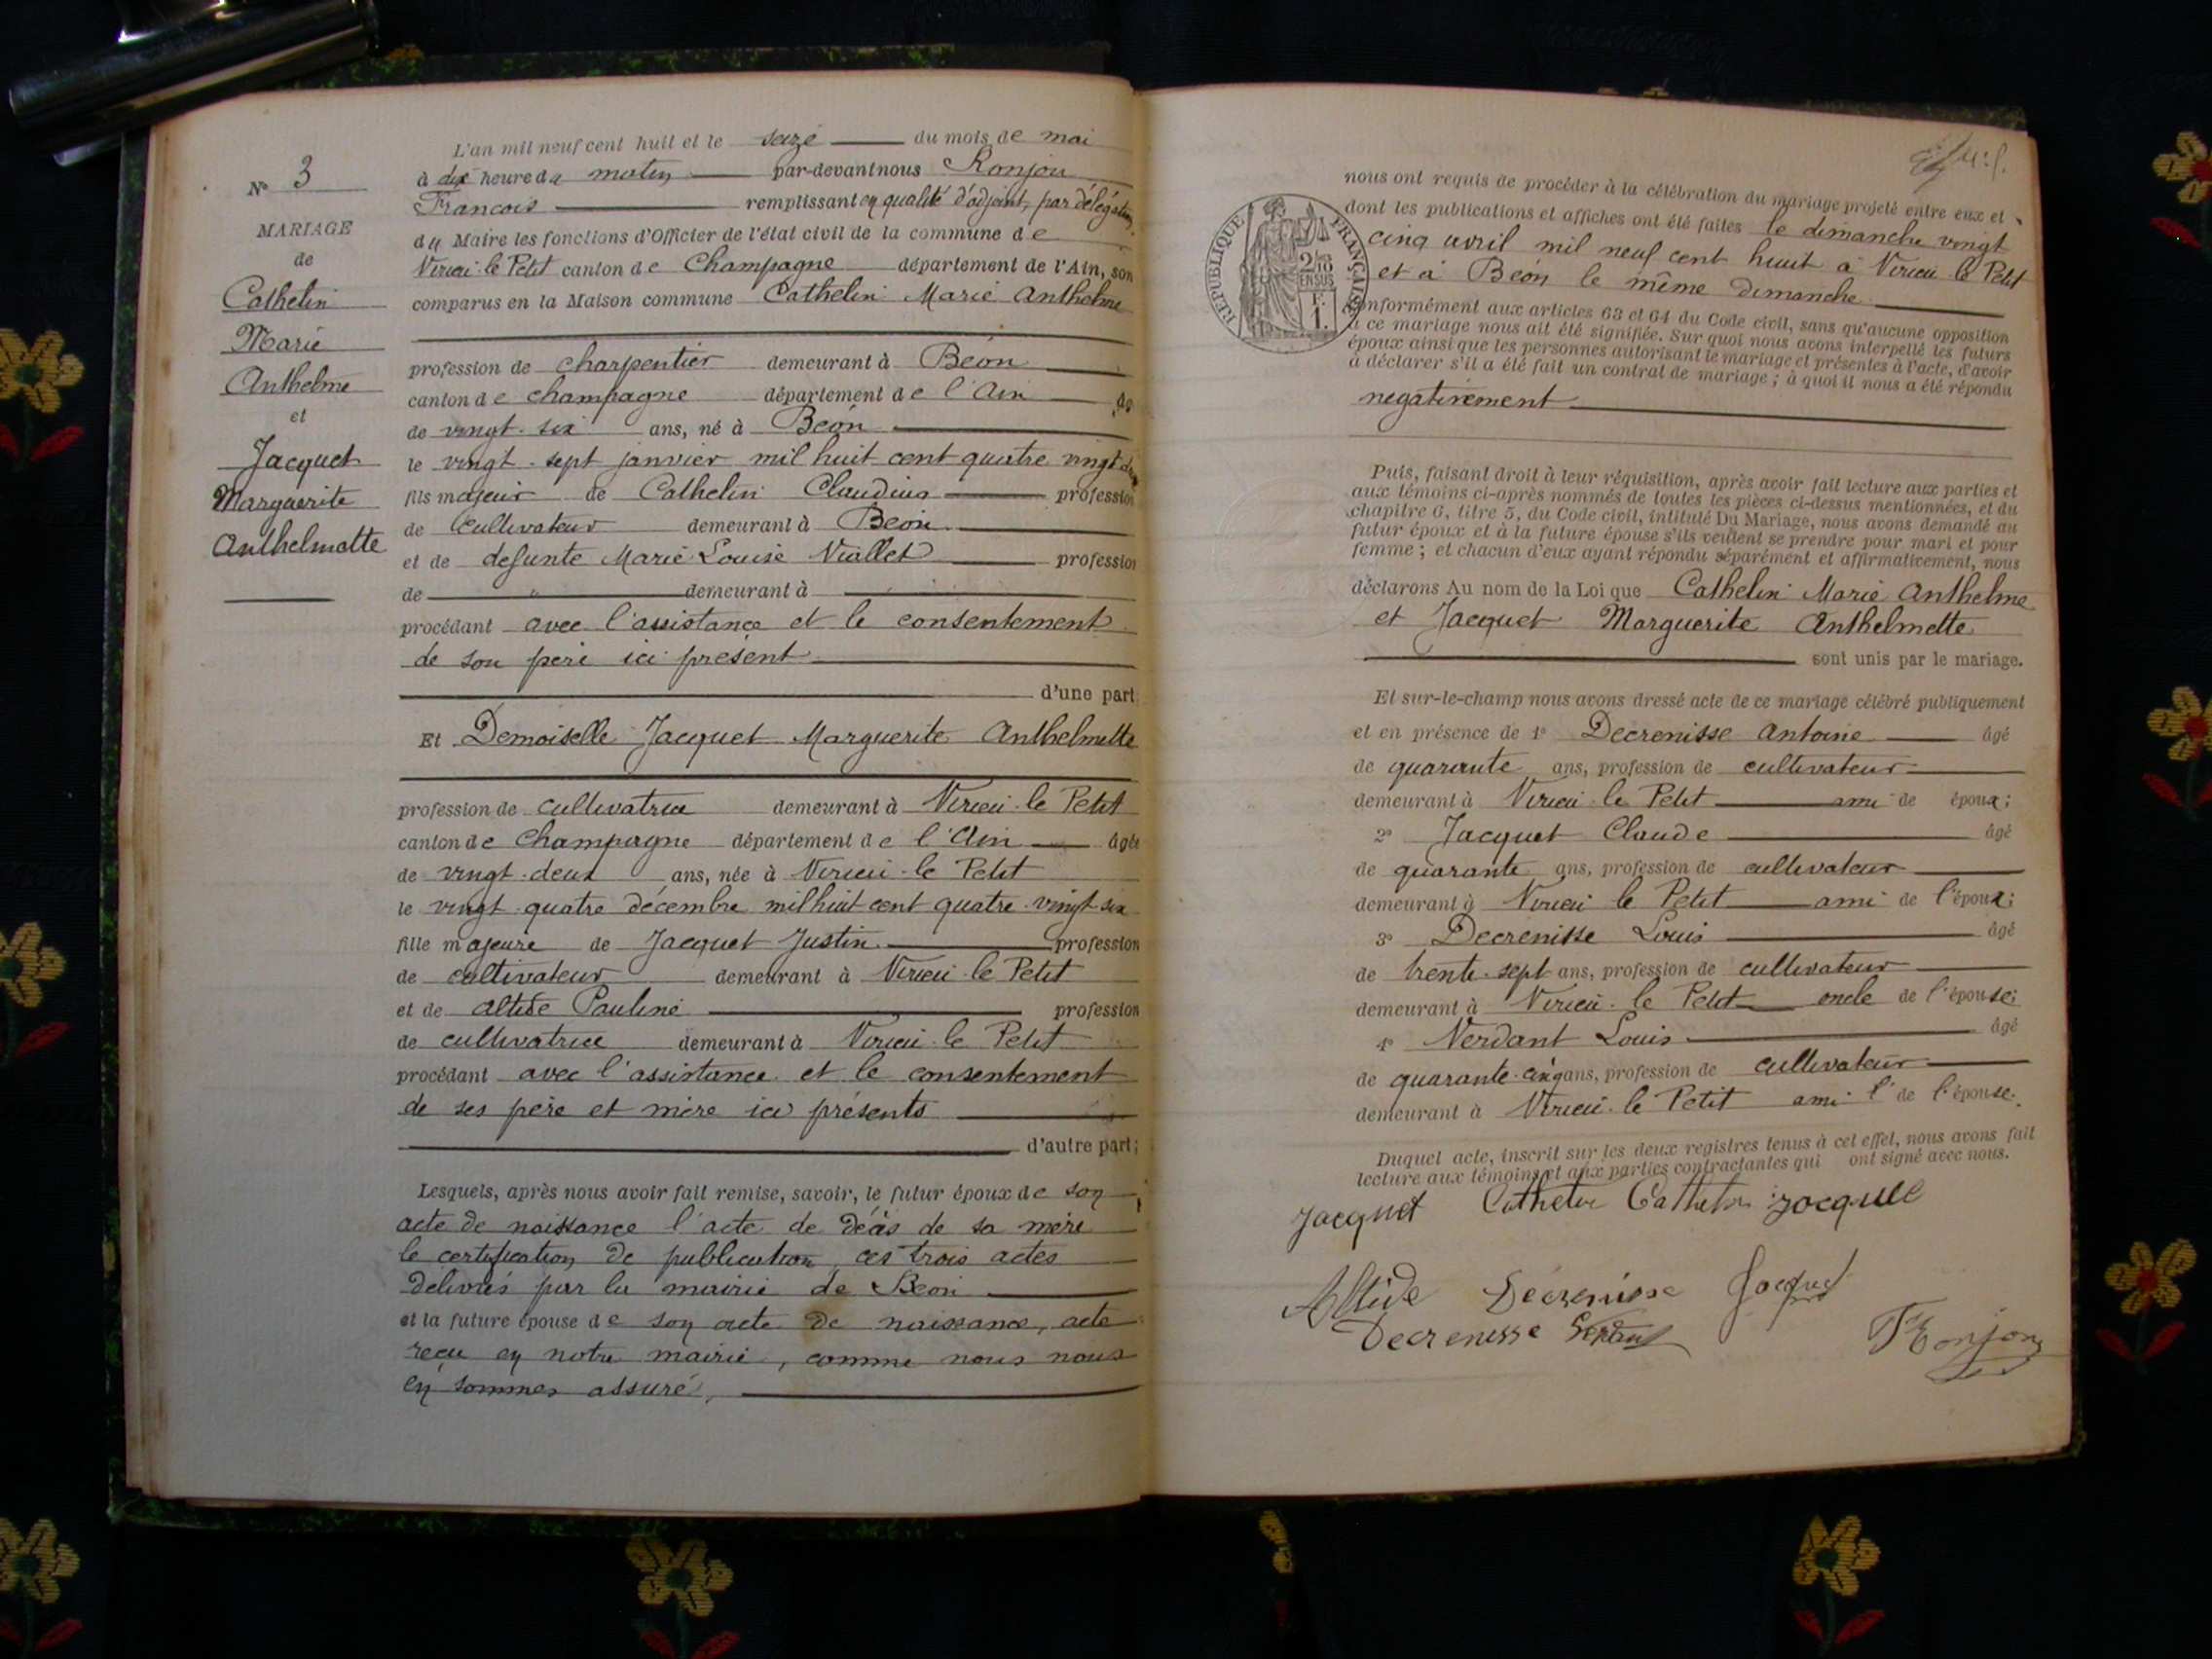 N° 3
MARIAGE
de
Cathelin
Marie
Anthelme
et
Jacquet
Marguerite
Anthelmette
L'an mil neuf cent huit et le seize du mois de mai
à dix heure du matin par-devant nous Ronjon
François remplissant en qualité d'adjoint, par délégation
du Maire les fonctions d'Officier de l'état civil de la commune de
Virieu-le-Petit canton de Champagne département de l'Ain, son
comparus en la Maison commune Cathelin Marie Anthelme
profession de charpentier demeurant à Béon
canton de champagne département de l'Ain
de vingt-six ans, né à Béon
le vingt-sept janvier mil huit cent quatre vingt deux
fils majeur de Cathelin Claudius profession
de Cultivateur demeurant à Béon
et de défunte Marie Louise Viallet profession
de demeurant à
procédant avec l'assistance et le consentement
de son père ici présent
d'une part
Et Demoiselle Jacquet Marguerite Anthelmette
profession de cultivatrice demeurant à Virieu-le Petit
canton de Champagne département de l'Ain âgée
de vingt-deux ans, née à Virieu-le Petit
le vingt-quatre décembre mil huit cent quatre-vingt six
fille majeure de Jacquet Justin profession
de cultivateur demeurant à Virieu-le Petit
et de Altide Pauline profession
de cultivatrice demeurant à Virieu-le Petit
procédant avec l'assistance et le consentement
de ses père et mère ici présents
d'autre part;
Lesquels, après nous avoir fait remise, savoir, le futur époux de son
acte de naissance l'acte de décès de sa mère
le certification de publication, ces trois actes
délivrés par la mairie de Béon
et la future épouse de son acte de naissance, acte
reçu en notre mairie, comme nous nous
en sommes assuré,
nous ont requis de procéder à la célébration du mariage projeté entre eux et
dont les publications et affiches ont été faites le dimanche vingt
cinq avril mil neuf cent huit à Virieu le Petit
et à Béon le même dimanche
RÉPUBLIQUE FRANÇAISE
2/10 EN SUS
F.
1.
conformément aux articles 63 et 64 du Code civil, sans qu'aucune opposition
à ce mariage nous ait été signifiée. Sur quoi nous avons interpellé les futurs
époux ainsi que les personnes autorisant le mariage et présentes à l'acte, d'avoir
à déclarer s'il a été fait un contrat de mariage ; à quoi il nous a été répondu
negativement
Puis, faisant droit à leur réquisition, après avoir fait lecture aux parties et
aux témoins ci-après nommés de toutes les pièces ci-dessus mentionnées, et du
chapitre 6, titre 5, du Code civil, intitulé Du Mariage, nous avons demandé au
futur époux et à la future épouse s'ils veulent se prendre pour mari et pour
femme ; et chacun d'eux ayant répondu séparément et affirmativement, nous
déclarons Au nom de la Loi que Cathelin Marie Anthelme
et Jacquet Marguerite Anthelmette
sont unis par le mariage.
Et sur-le-champ nous avons dressé acte de ce mariage célébré publiquement
et en présence de 1° Decrenisse Antoine âgé
de quarante ans, profession de cultivateur
demeurant à Virieu-le Petit ami de époux;
2° Jacquet Claude âgé
de quarante ans, profession de cultivateur
demeurant à Virieu le Petit ami de l'époux;
3° Decrenisse Louis âgé
de trente-sept ans, profession de cultivateur
demeurant à Virieu-le Petit oncle de l'épouse;
4° Verdant Louis âgé
de quarante-cinq ans, profession de cultivateur
demeurant à Virieu-le Petit ami l' de l'épouse.
Duquel acte, inscrit sur les deux registres tenus à cet effet, nous avons fait
lecture aux témoins et aux parties contractantes qui ont signé avec nous.
Jacquet Cathelin Cathelin Jacquet
Altide Decrenisse Jacquet
Decrenisse Verdant
Ronjon